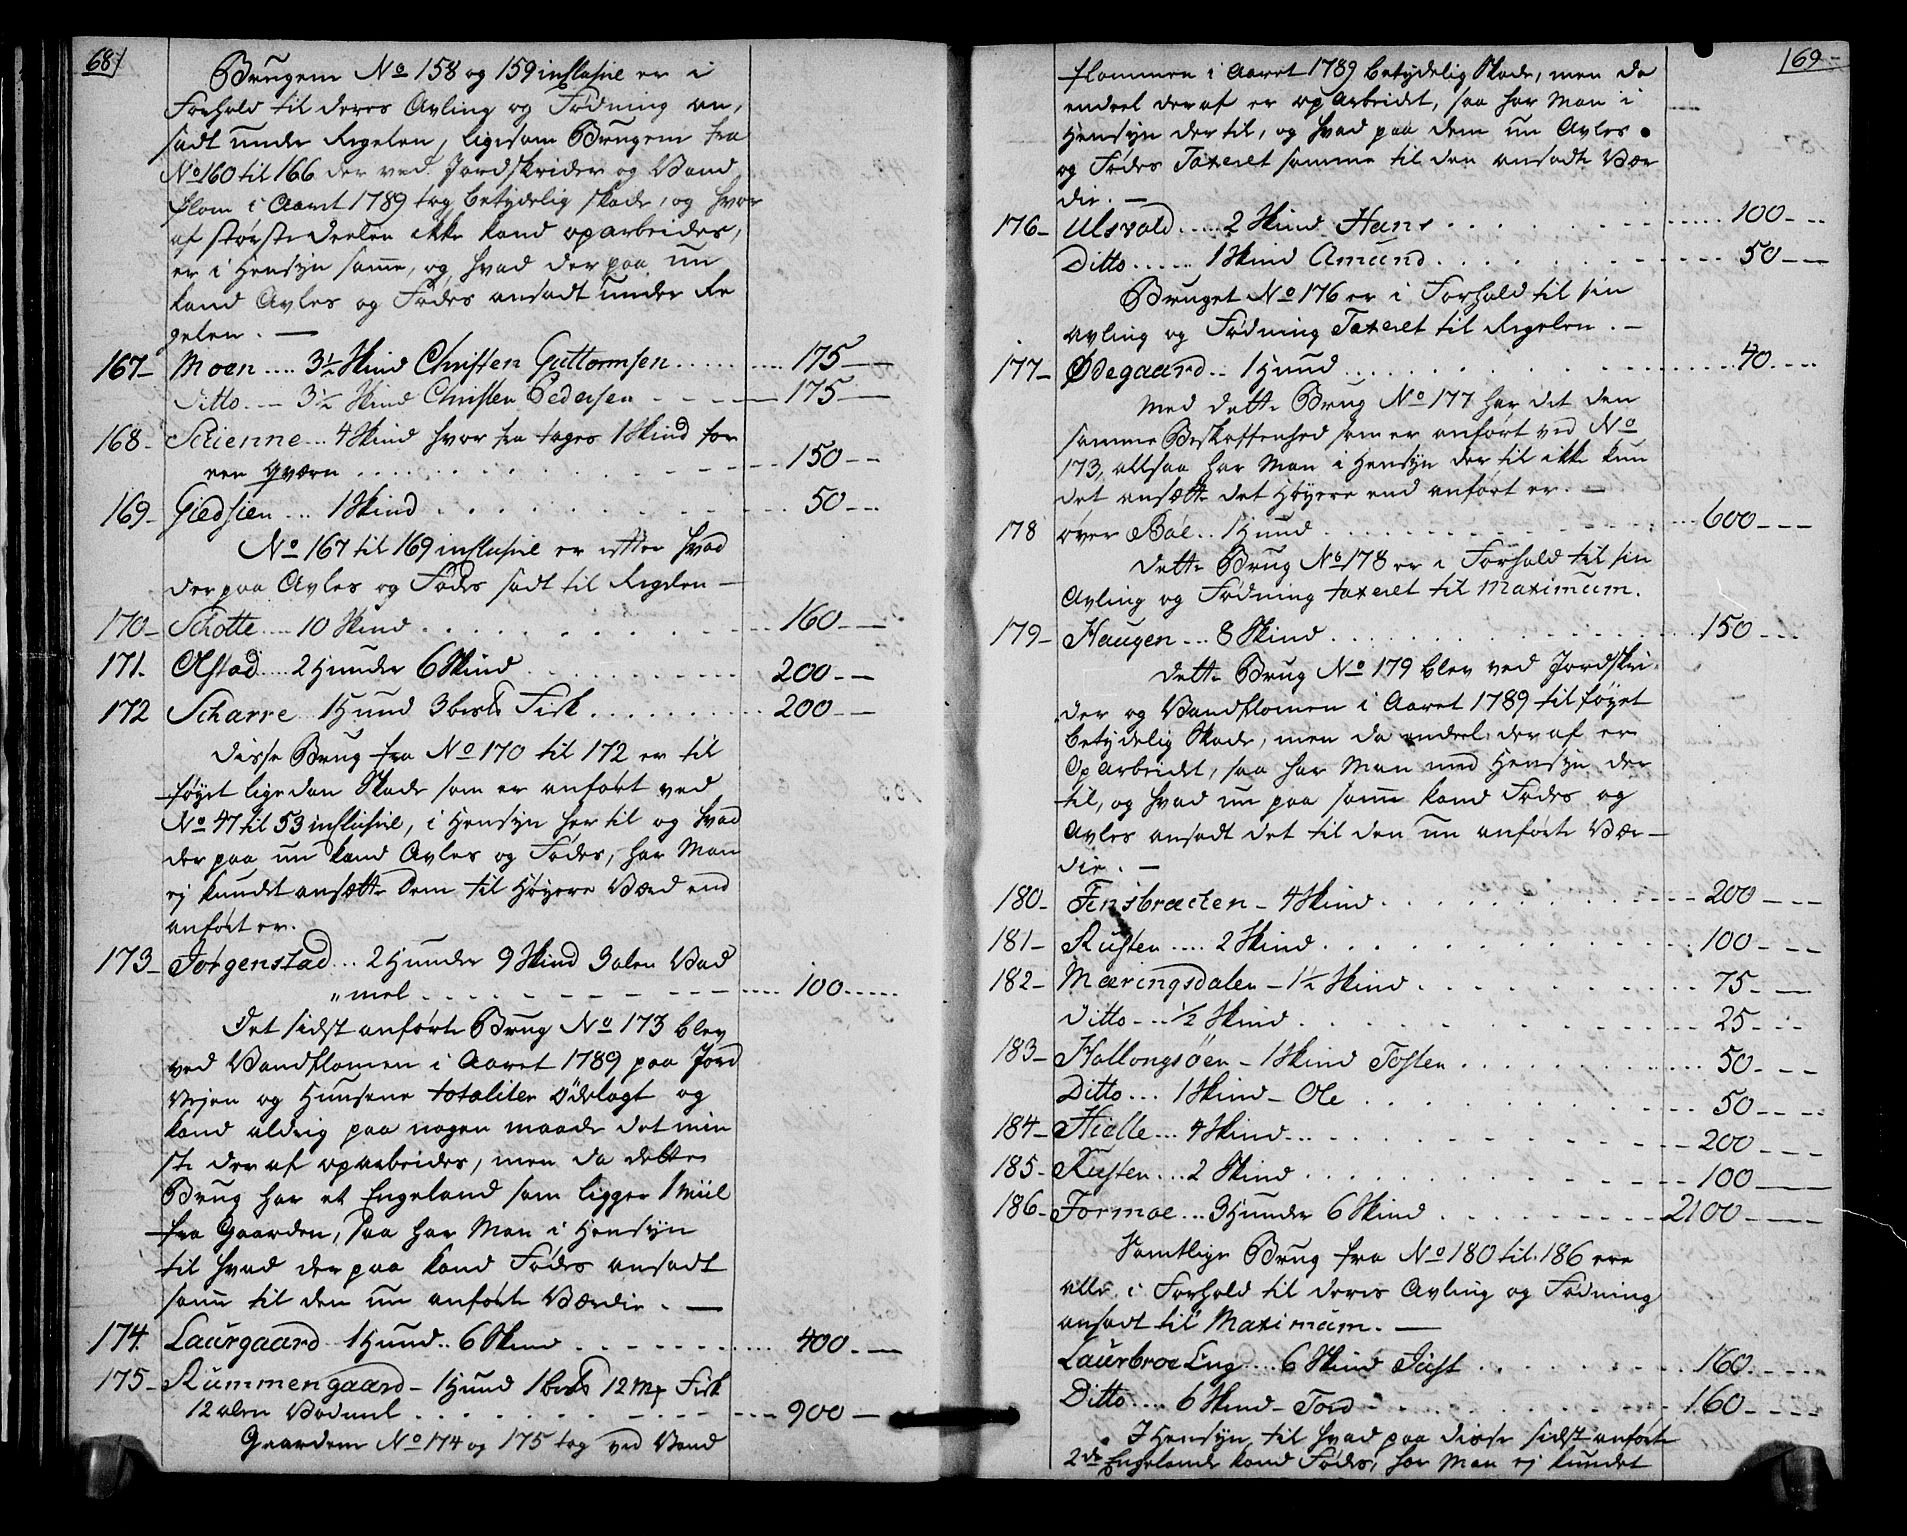 68
Brugene No 158 og 159 inclusive er i
Forhold til deres Avling og Födning an,
sadt under Regelen, ligesom Brugene fra
No 160 til 166 der ved Jordskrider og Vand
flom i Aaret 1789 tog betydelig skade, og hvor
af störste deelen ikke kand oparbeides,
er i Hensyn samme, og hvad der paa nu
kand Avles og Födes ansadt under Re
gelen. —
167 - Moen .... 3½ Skind Christen Guttormsen ....... 175 —
Ditto .— 3½ Skind Christen Pedersen - - - — 175 —
168 - Stienne ... 4 Skind hvor fra tages 1 Skind for
een Qværn ........ 150 --
169 - Giedsien ... 1 Skind ........ 50 --
No 167 til 169 inclusive er efter hvad
der paa Avles og Födes sadt til Regelen —
170 - Schotte .... 10 Skind ........ 160 --
171. Olstad .... 2 Hunder 6 Skind ........ 200 --
172 Scharre 1 Hund 3 bsk Fisk ........ 200 --
Disse Brug fra No 170 til 172 er til
föyet ligedan Skade som er anfört ved
No 47 til 53 inclusive, i Hensyn her til og hvad
der paa nu kand Avles og Födes, har Man
ej kundet ansætte dem til Höyere Værd end
anfört er.
173 - Jörgenstad ... 2 Hunder 9 Skind 3 alen Vad
" mel ........ 100 .....
Det sidst anförte Brug No 173 blev
ved Vandflomen i Aaret 1789 paa Jord
Vejen og Huusene totaliter ödelagt og
kand aldrig paa nogen maade det min
ste der af oparbeides, men da dette
Brug har et Engeland som ligger 1 Miil
fra Gaarden, saa har Man i Hensyn
til hvad der paa kand Födes ansadt
samme til den nu anförte Værdie. —
174. Laurgaard 1 Hund .. 6 Skind ........ 400 --
175 - Rummengaard - 1 Hund 1 bsk 12 Mk Fisk
12 alen Vadmel ........ 900 —
Gaardene No 174 og 175 tog ved Vand
169
flommen i Aaret 1789 betydelig Skade, men da
endeel der af er oparbeidet, saa har Man i
Hensyn der til, og hvad paa dem nu Avles
og Födes Taxeret samme til den ansadte Vær
die. —
176 - Ulsvold ..... 2 Skind Hans ........ 100 - --
Ditto ...... 1 Skind Amund ........ 50 - —
Bruget No 176 er i Forhold til sin
avling og Födning Taxeret til Regelen. —
177 - Ødegaard .. 1 Hund ........ 40 ....
Med dette Brug No 177 har det den
samme Beskaffenhed som er anfört ved No
173, altsaa har Man i Hensyn der til ikke kun
det ansætte det Höyere end anfört er. —
178 över Böl .. 1 Hund ........ 600 - --
Dette Brug No 178 er i Forhold til sin
Avling og Födning taxeret til Maximum.
179 - Haugen ... 8 Skind ........ 150 - --
Dette Brug No 179 blev ved Jordskri,
der og Vandflomen i Aaret 1789 til föyet
betydelig Skade, men da endeel der af er
Op Arbeidet, saa har Man med Hensyn der
til, og hvad nu paa samme kand Födes og
Avles ansadt det til den nu anförte Vær —
die. —
180 - Finsbraeten - 4 Skind ........ 200 - --
181 - Rusten ..... 2 Skind ........ 100 - --
182 - Mæringsdalen - 1½ Skind ........ 75 - —
Ditto ... ½ Skind ........ 25 - --
183 - Hattongsöen - 1 Skind Tosten ........ 50 - --
Ditto ... 1 Skind - Ole ........ 50 - --
184 - Hielle ... 4 Skind ........ 200 - --
185 - Rusten ... 2 Skind ........ 100 ——
186 - Formoe ... 3 Hunder 6 Skind ........ 2100 - --
Samtlige Brug fra No 180 til 186 ere
alle i Forhold til deres Avling og Födning
ansadt til Maximum. —
Laurbroe Eng ... 6 Skind Just ........ 160 - --
Ditto .... 6 Skind - Tord ........ 160 - --
I Hensyn til hvad paa disse sidst anförte
2de Engelande kand Födes, har Man ej kundet